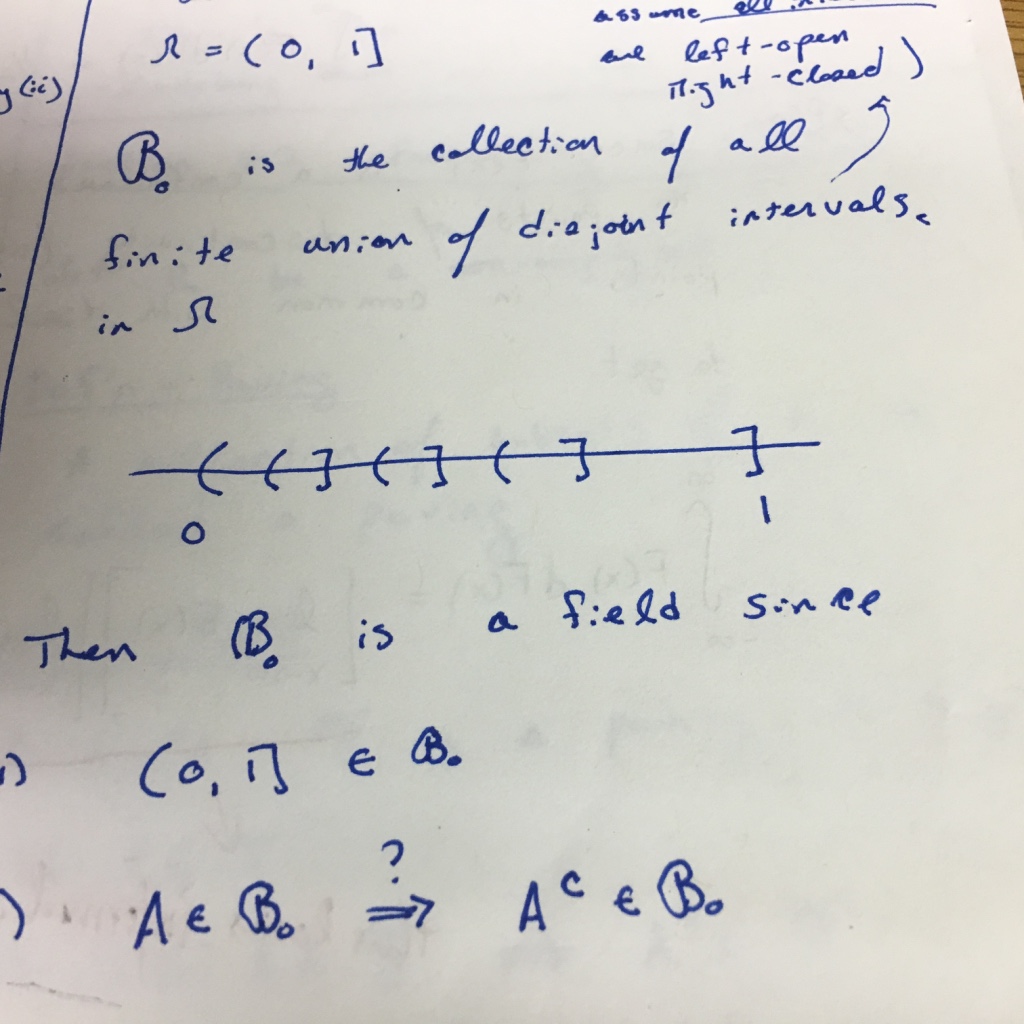 assume all
Ω = (0, 1]
are left-open
y (ii)
right-closed)
𝓑₀ is the collection of all
finite union of disjoint intervals.
in Ω
( ( ] ( ] ( ] ]
0 1
Then 𝓑₀ is a field since
i) (0, 1] ∈ 𝓑₀
) A ∈ 𝓑₀ ?⇒ Aᶜ ∈ 𝓑₀